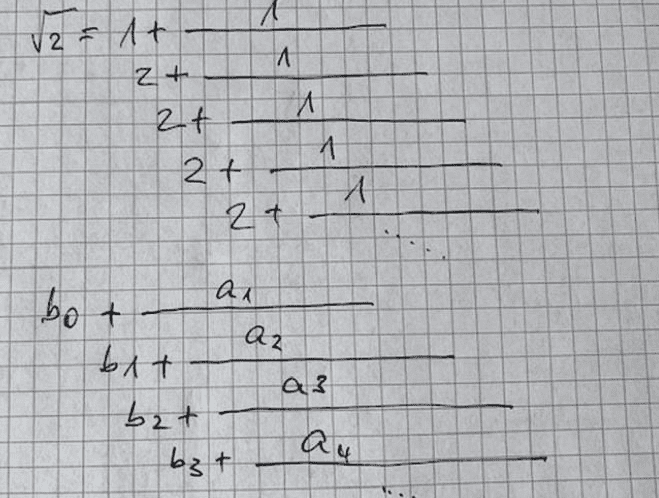 √2 = 1 + 1
2 + 1
2 + 1
2 + 1
2 + 1
.....
b0 + a1
b1 + a2
b2 + a3
b3 + a4
...